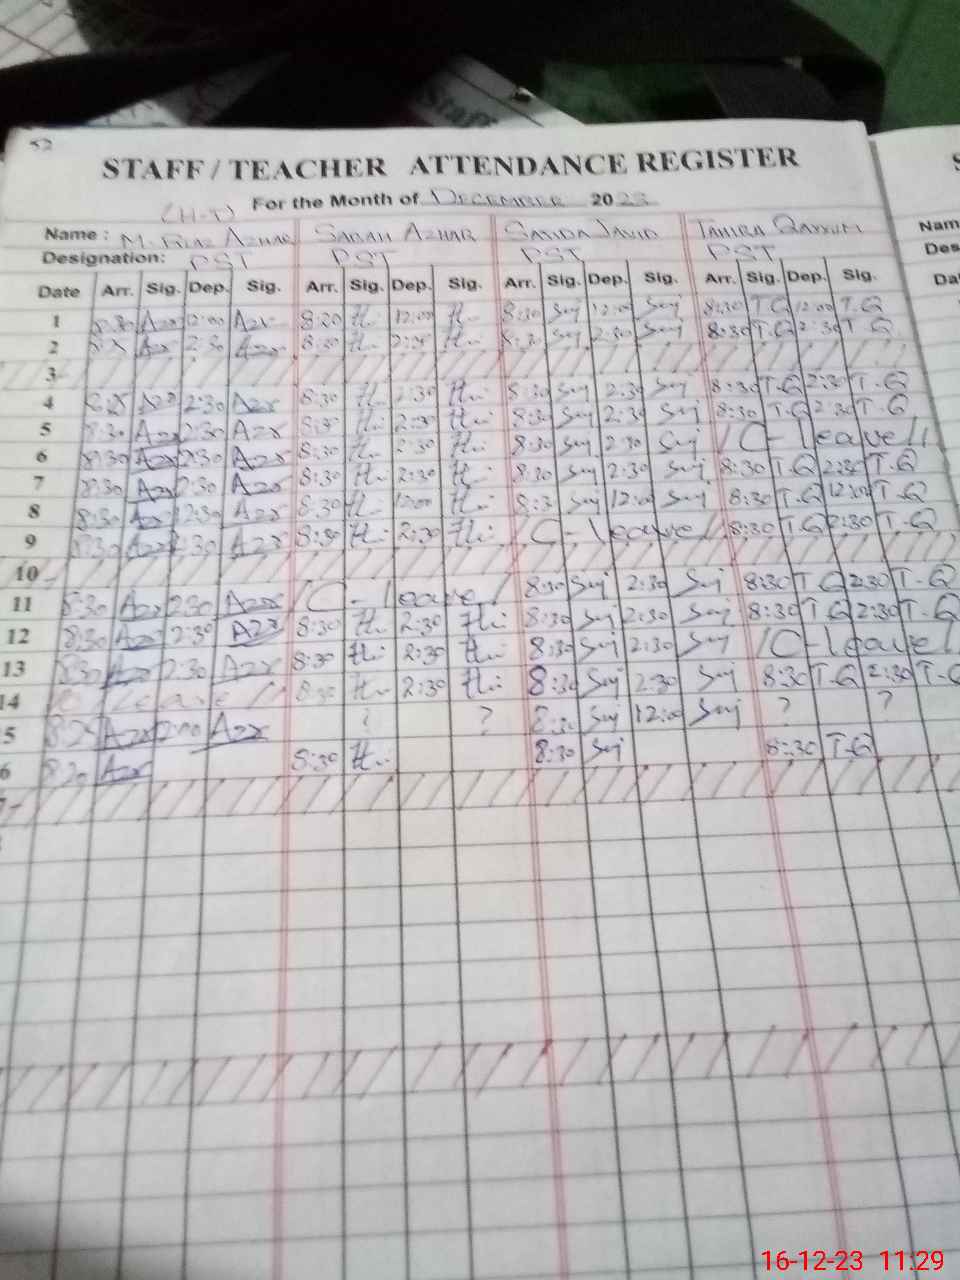 52
STAFF / TEACHER ATTENDANCE REGISTER
For the Month of DECEMBER 2023
(H-T)
Name : M. RIAZ AZHAR SARAH AZHAR SAJIDA JAVID TAHIRA QAYYUM
Designation: PST PST PST PST
Date Arr. Sig. Dep. Sig. Arr. Sig. Dep. Sig. Arr. Sig. Dep. Sig. Arr. Sig. Dep. Sig.
1 8:30 Azr 12:00 Azr 8:30 12:00 8:30 Saj 12:00 Saj 8:30 T.Q 12:00 T.Q
2 Azr 2:30 Azr 8:30 8:30 Saj 2:30 Saj 8:30 T.Q 2:30 T.Q
3
4 8:25 Azr 2:30 Azr 8:30 2:30 8:30 Saj 2:30 Saj 8:30 T.Q 2:30 T.Q
5 8:30 Azr 2:30 Azr 8:30 2:30 8:30 Saj 2:30 Saj 8:30 T.Q 2:30 T.Q
6 8:30 Azr 2:30 Azr 8:30 2:30 8:30 Saj 2:30 Saj C-leave
7 8:30 Azr 2:30 Azr 8:30 2:30 8:30 Saj 2:30 Saj 8:30 T.Q 2:30 T.Q
8 8:30 Azr 12:30 Azr 8:30 12:00 8:30 Saj 12:00 Saj 8:30 T.Q 12:00 T.Q
9 8:30 Azr 2:30 Azr 8:30 2:30 C-leave 8:30 T.Q 2:30 T.Q
10
11 8:30 Azr 2:30 Azr C-leave 8:30 Saj 2:30 Saj 8:30 T.Q 2:30 T.Q
12 8:30 Azr 2:30 Azr 8:30 2:30 8:30 Saj 2:30 Saj 8:30 T.Q 2:30 T.Q
13 8:30 Azr 2:30 Azr 8:30 2:30 8:30 Saj 2:30 Saj C-leave
14 C-leave 8:30 2:30 8:30 Saj 2:30 Saj 8:30 T.Q 2:30 T.Q
5 8:25 Azr 12:00 Azr ? ? 8:30 Saj 12:00 Saj ? ?
6 8:30 Azr 8:30 8:30 Saj 8:30 T.Q
7
S
Nam
Des
Da
Staff
16-12-23 11:29